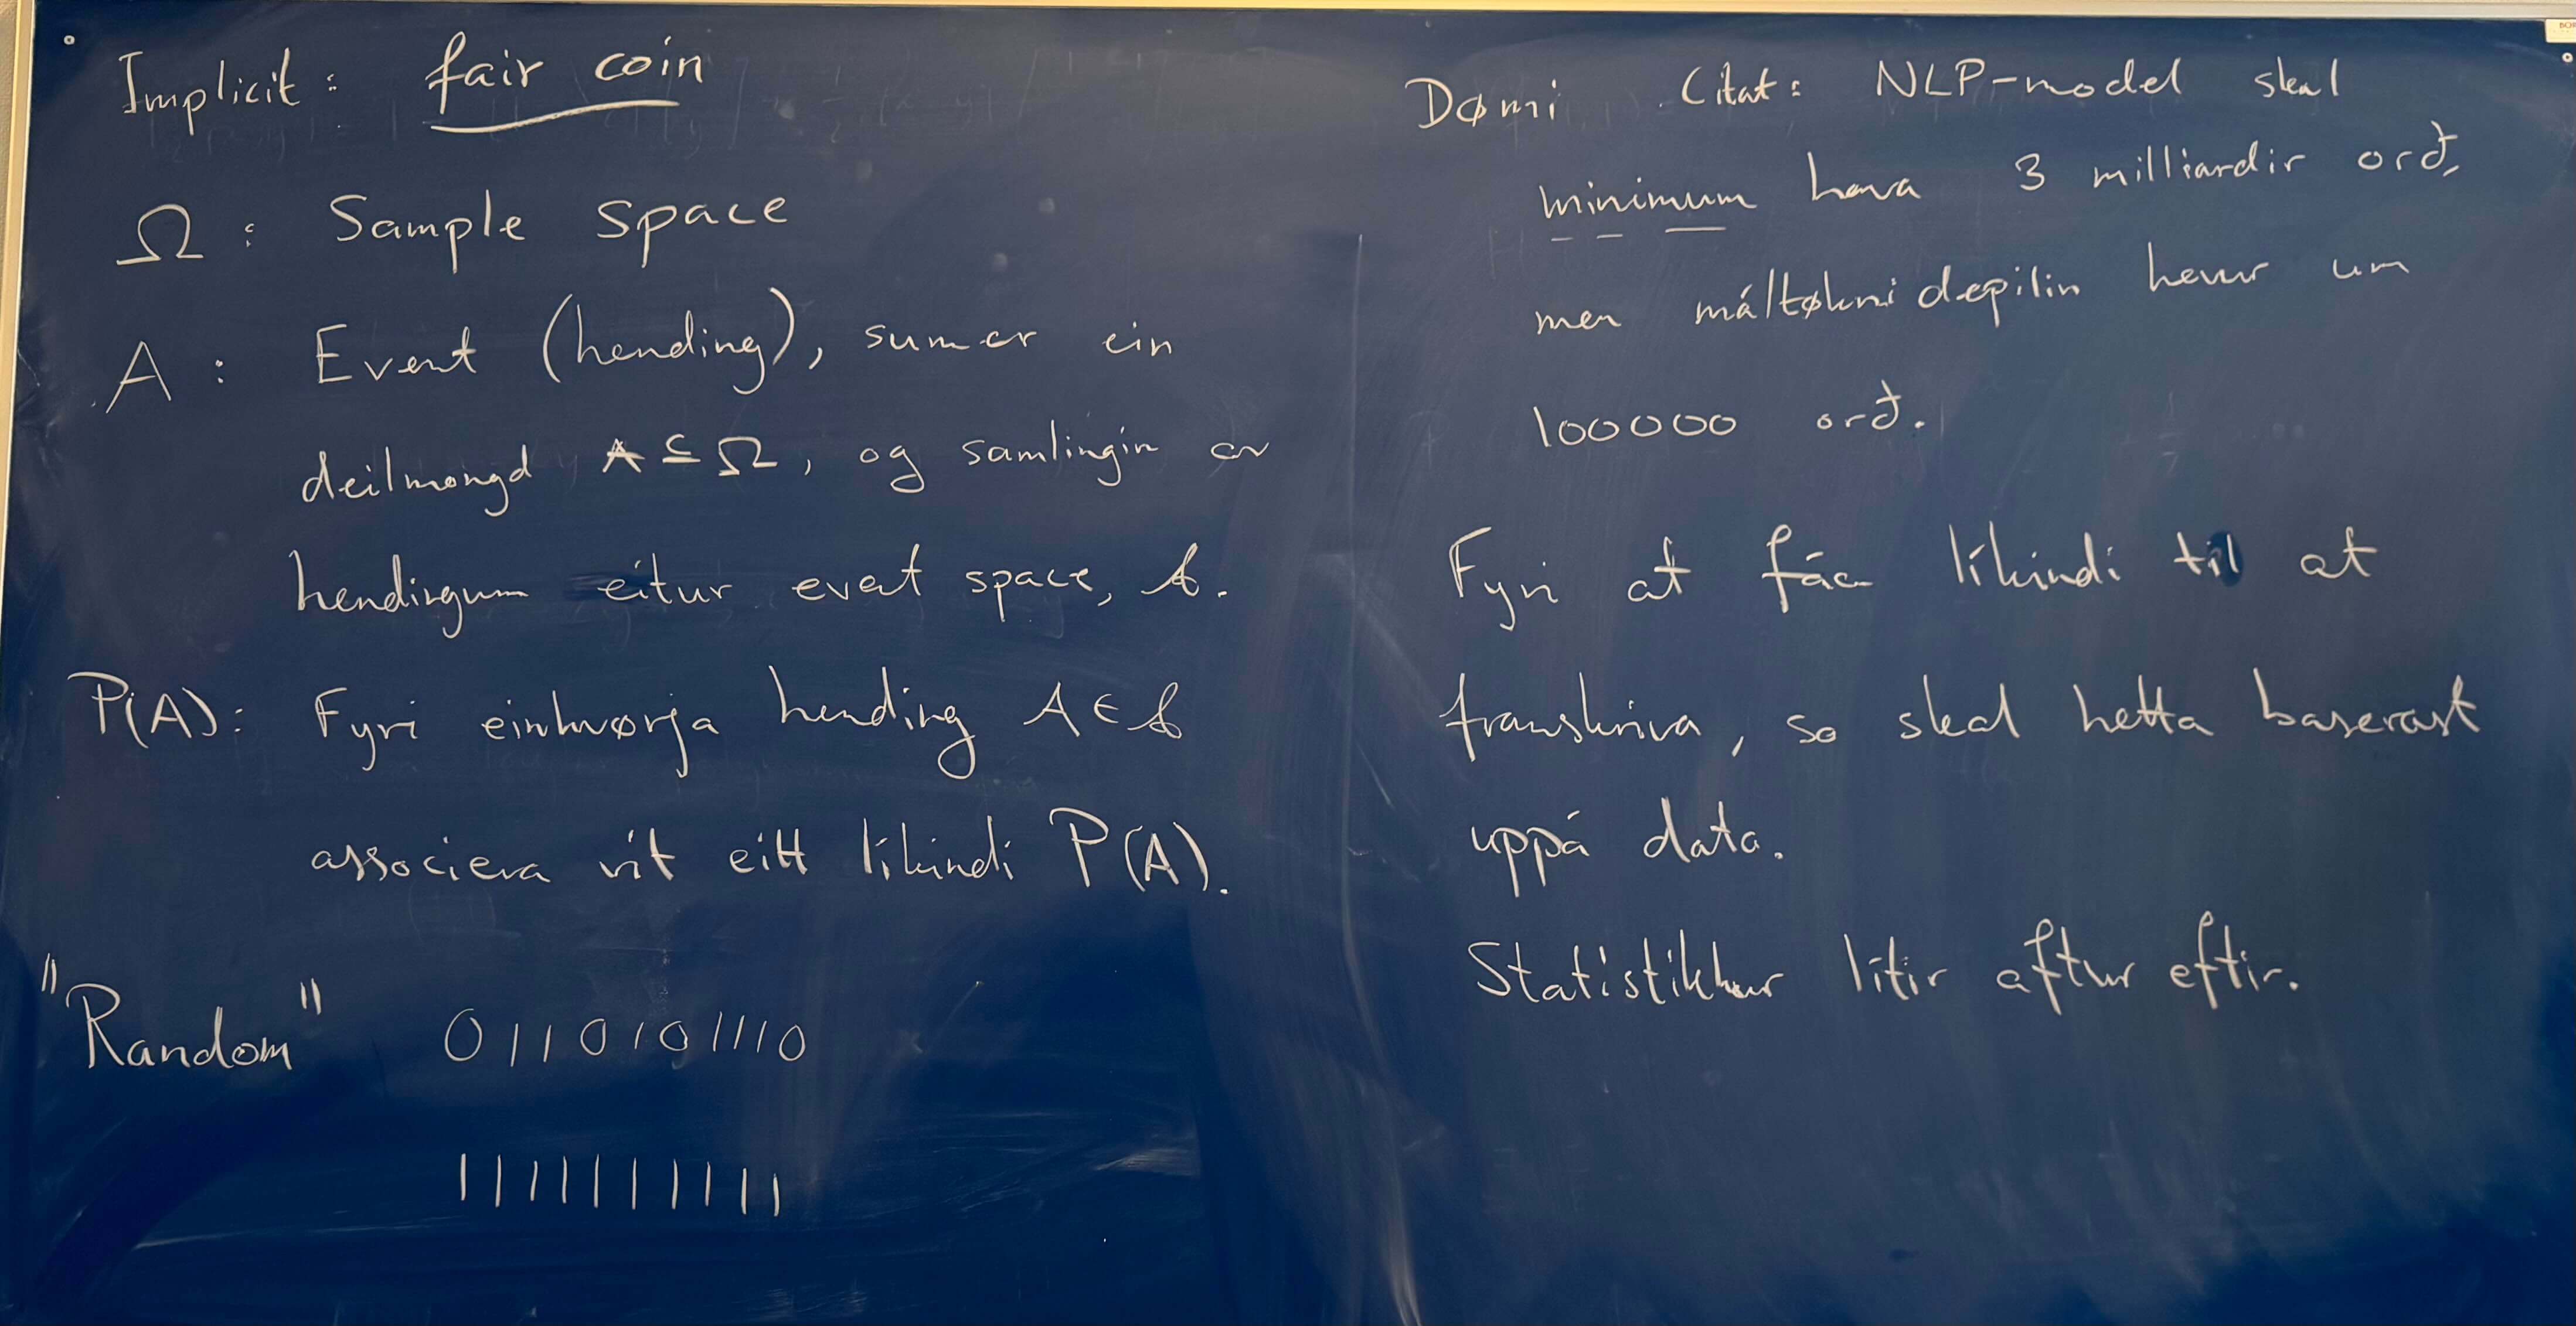 Implicit: fair coin
Ω: Sample space
A: Event (hending), sum er ein
deilmongd A ⊆ Ω, og samlingin av
hendingum eitur event space, 𝒜.
P(A): Fyri einhvørja hending A ∈ 𝒜
associera vit eitt líkindi P(A).
"Random" 0110101110
1111111111
Dømi Citat: NLP-model skal
minimum hava 3 milliardir orð,
men máltøknidepilin hevur um
100000 orð.
Fyri at fáa líkindi til at
transkriva, so skal hetta baserast
uppá data.
Statistikkur lítir aftur eftir.